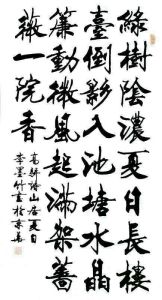 綠樹陰濃夏日長樓
臺倒影入池塘水晶
簾動微風起滿架薔
薇一院香
高駢詩山居夏日
李墨竹書於京華